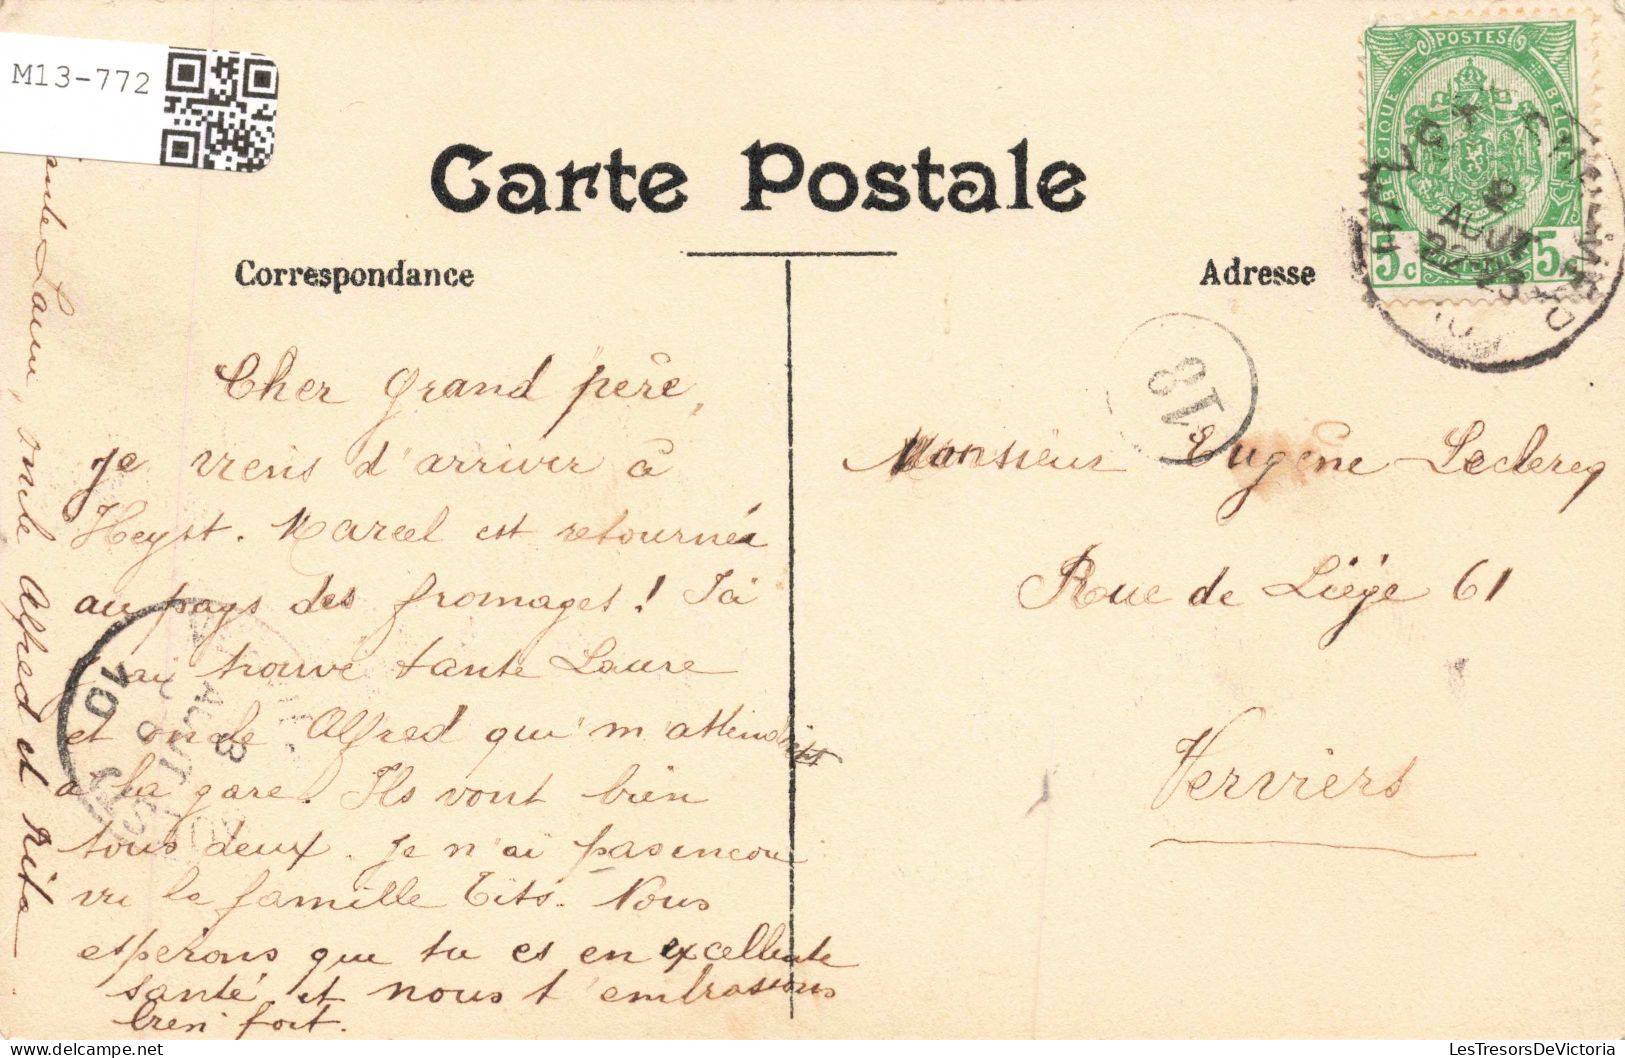 M13-772
Carte Postale
Correspondance
Adresse
POSTES
BELGIQUE
5c 5c
AOUT
18
Cher Grand père,
je viens d'arriver à
Heyst. Marcel est retourné
au pays des fromages! Ici
j'ai trouvé tante Laure
et oncle Alfred qui m'attendaient
à la gare. Ils vont bien
tous deux. Je n'ai pas encore
vu la famille Tits. Nous
espérons que tu es en excellente
santé, et nous t'embrassons
bien fort.
tante Laure, oncle Alfred et Rita
Monsieur Eugène Leclercq
Rue de Liége 61
Verviers
10
8
AOUT
LesTresorsDeVictoria
www.delcampe.net